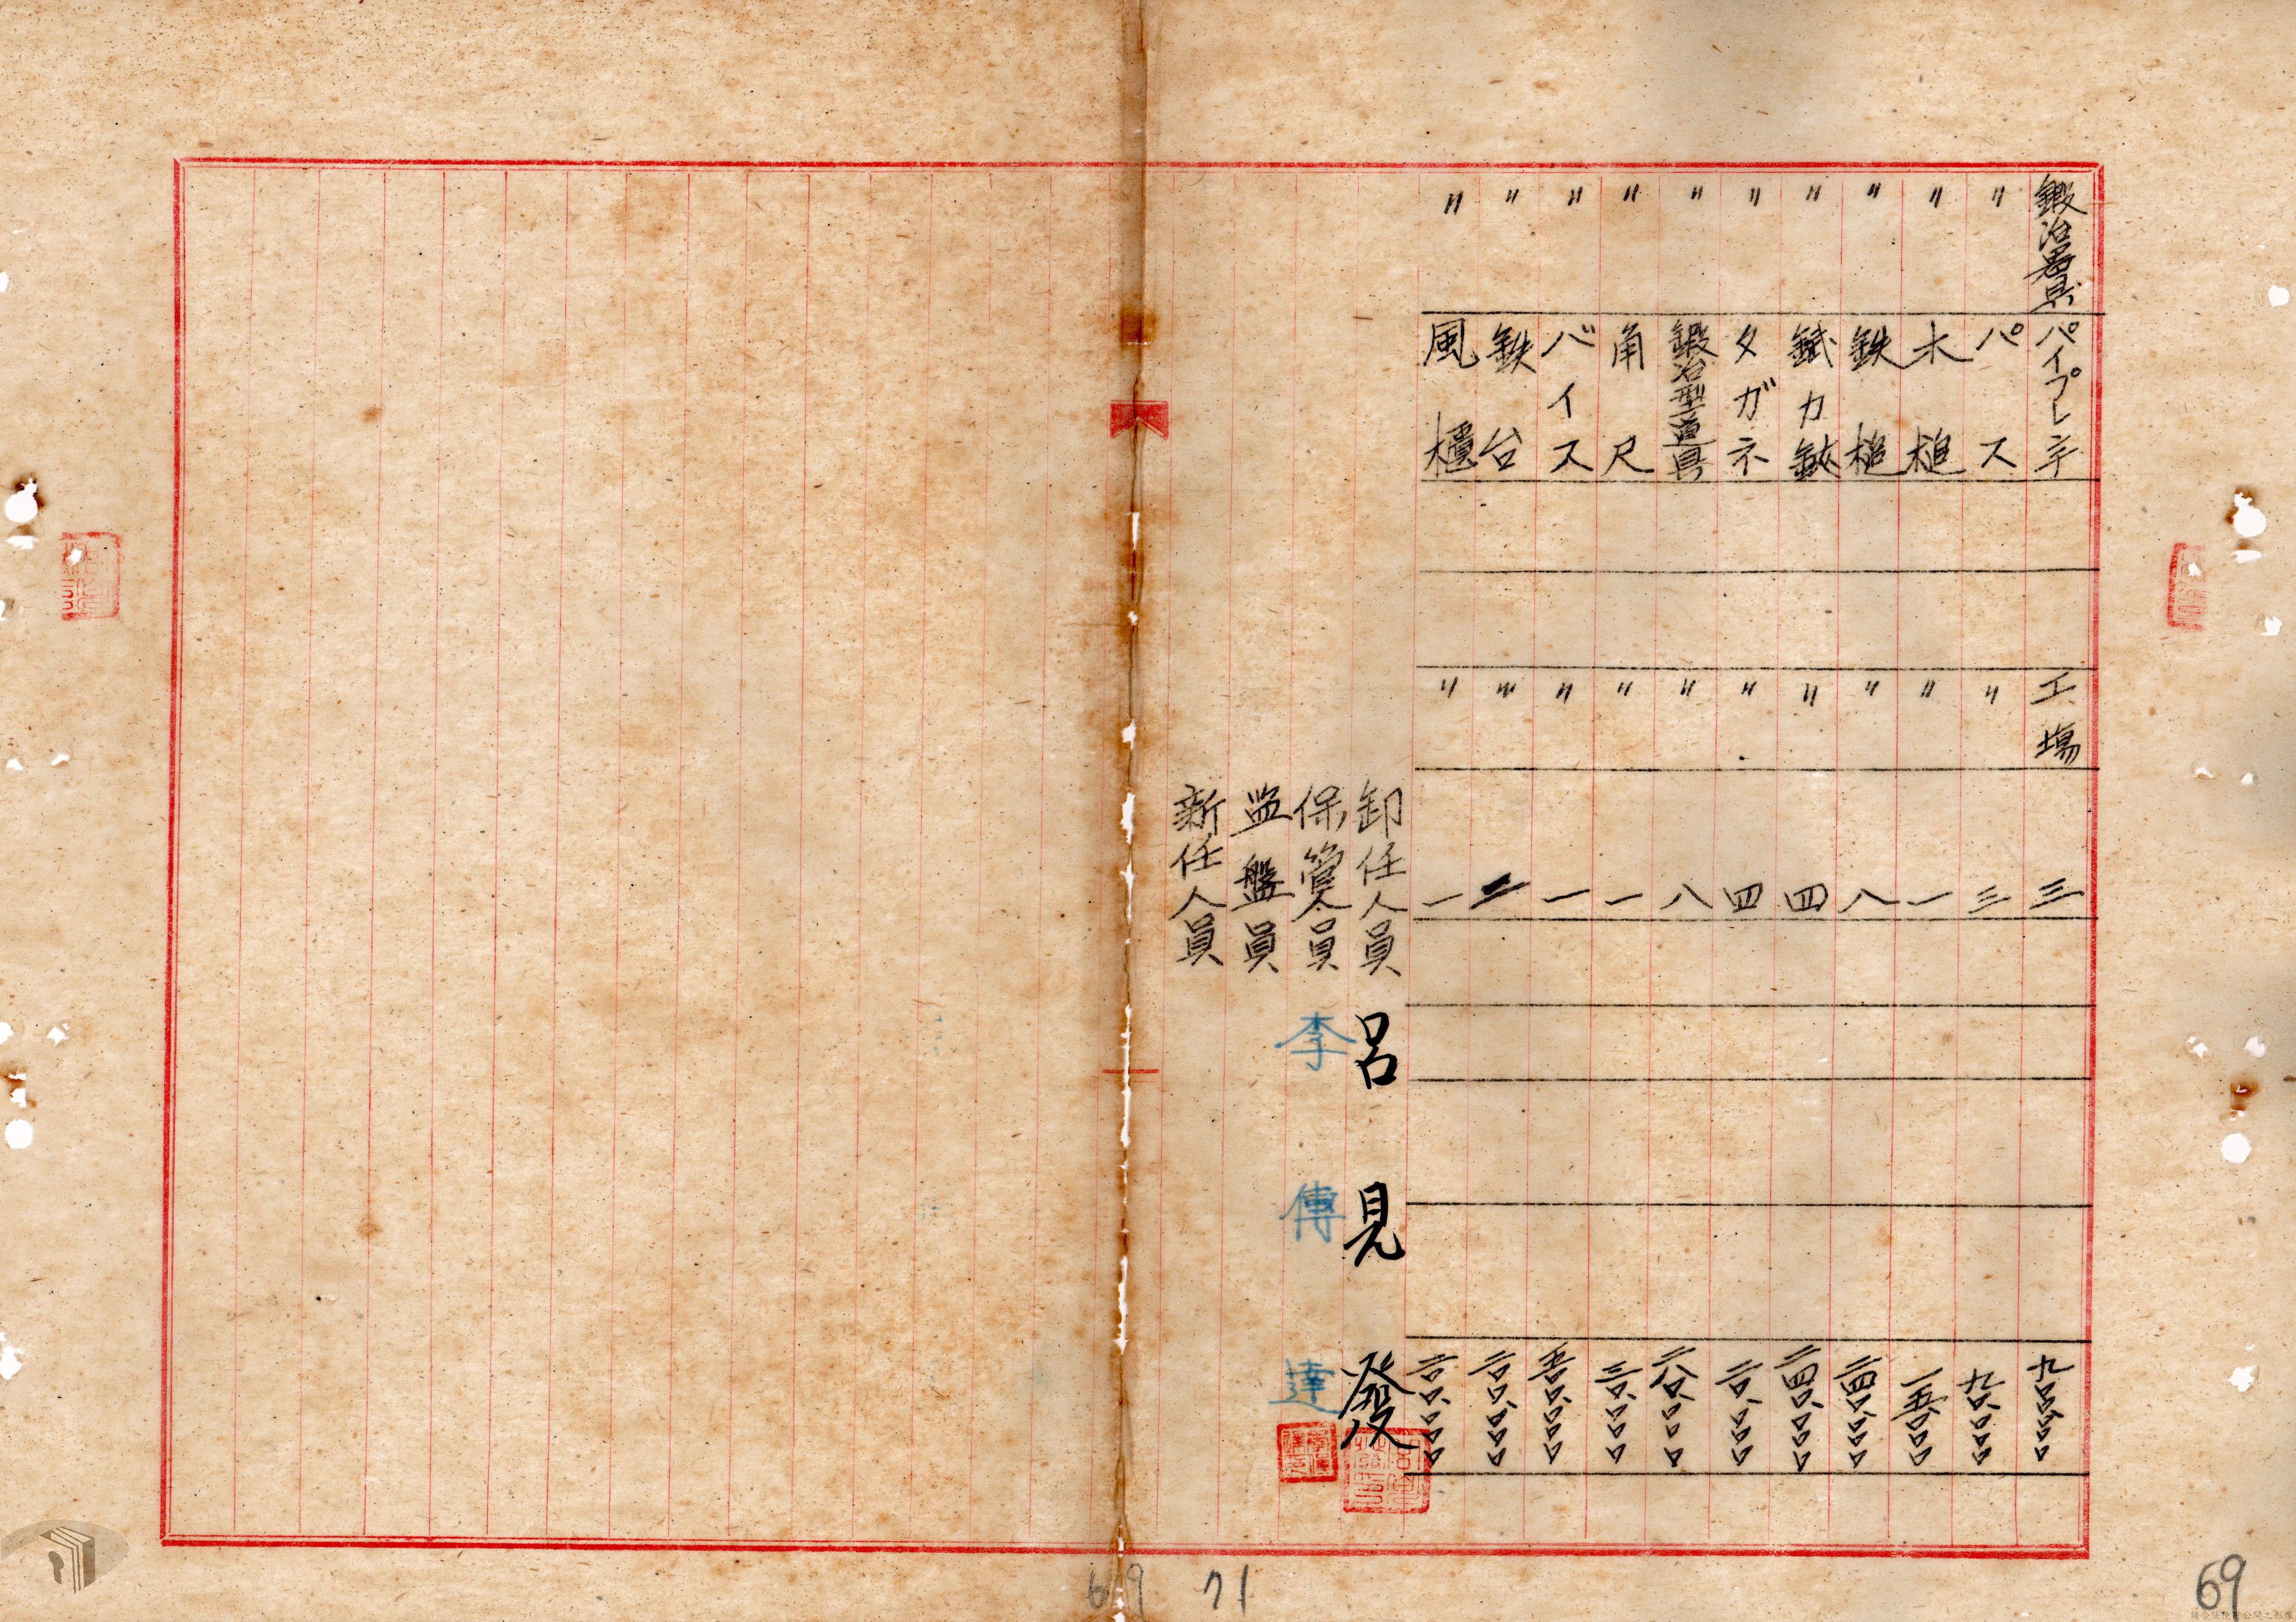 鍛治器具 パイプレンチ 工場 三 九〇〇〇〇
〃 パス 〃 三 九〇〇〇〇
〃 木槌 〃 一 一五〇〇〇
〃 鉄槌 〃 八 二四〇〇〇〇
〃 カ鋏 〃 四 二四〇〇〇〇
〃 タガネ 〃 四 二〇〇〇〇
〃 鍛治型道具 〃 八 二八〇〇〇
〃 角尺 〃 一 三〇〇〇〇
〃 バイス 〃 一 五〇〇〇〇
〃 鉄台 〃 二 二〇〇〇〇〇
〃 風櫃 〃 一 二〇〇〇〇〇
卸任人員 呂見發
保管人員 李傳達
監盤員
新任人員
69 71
69